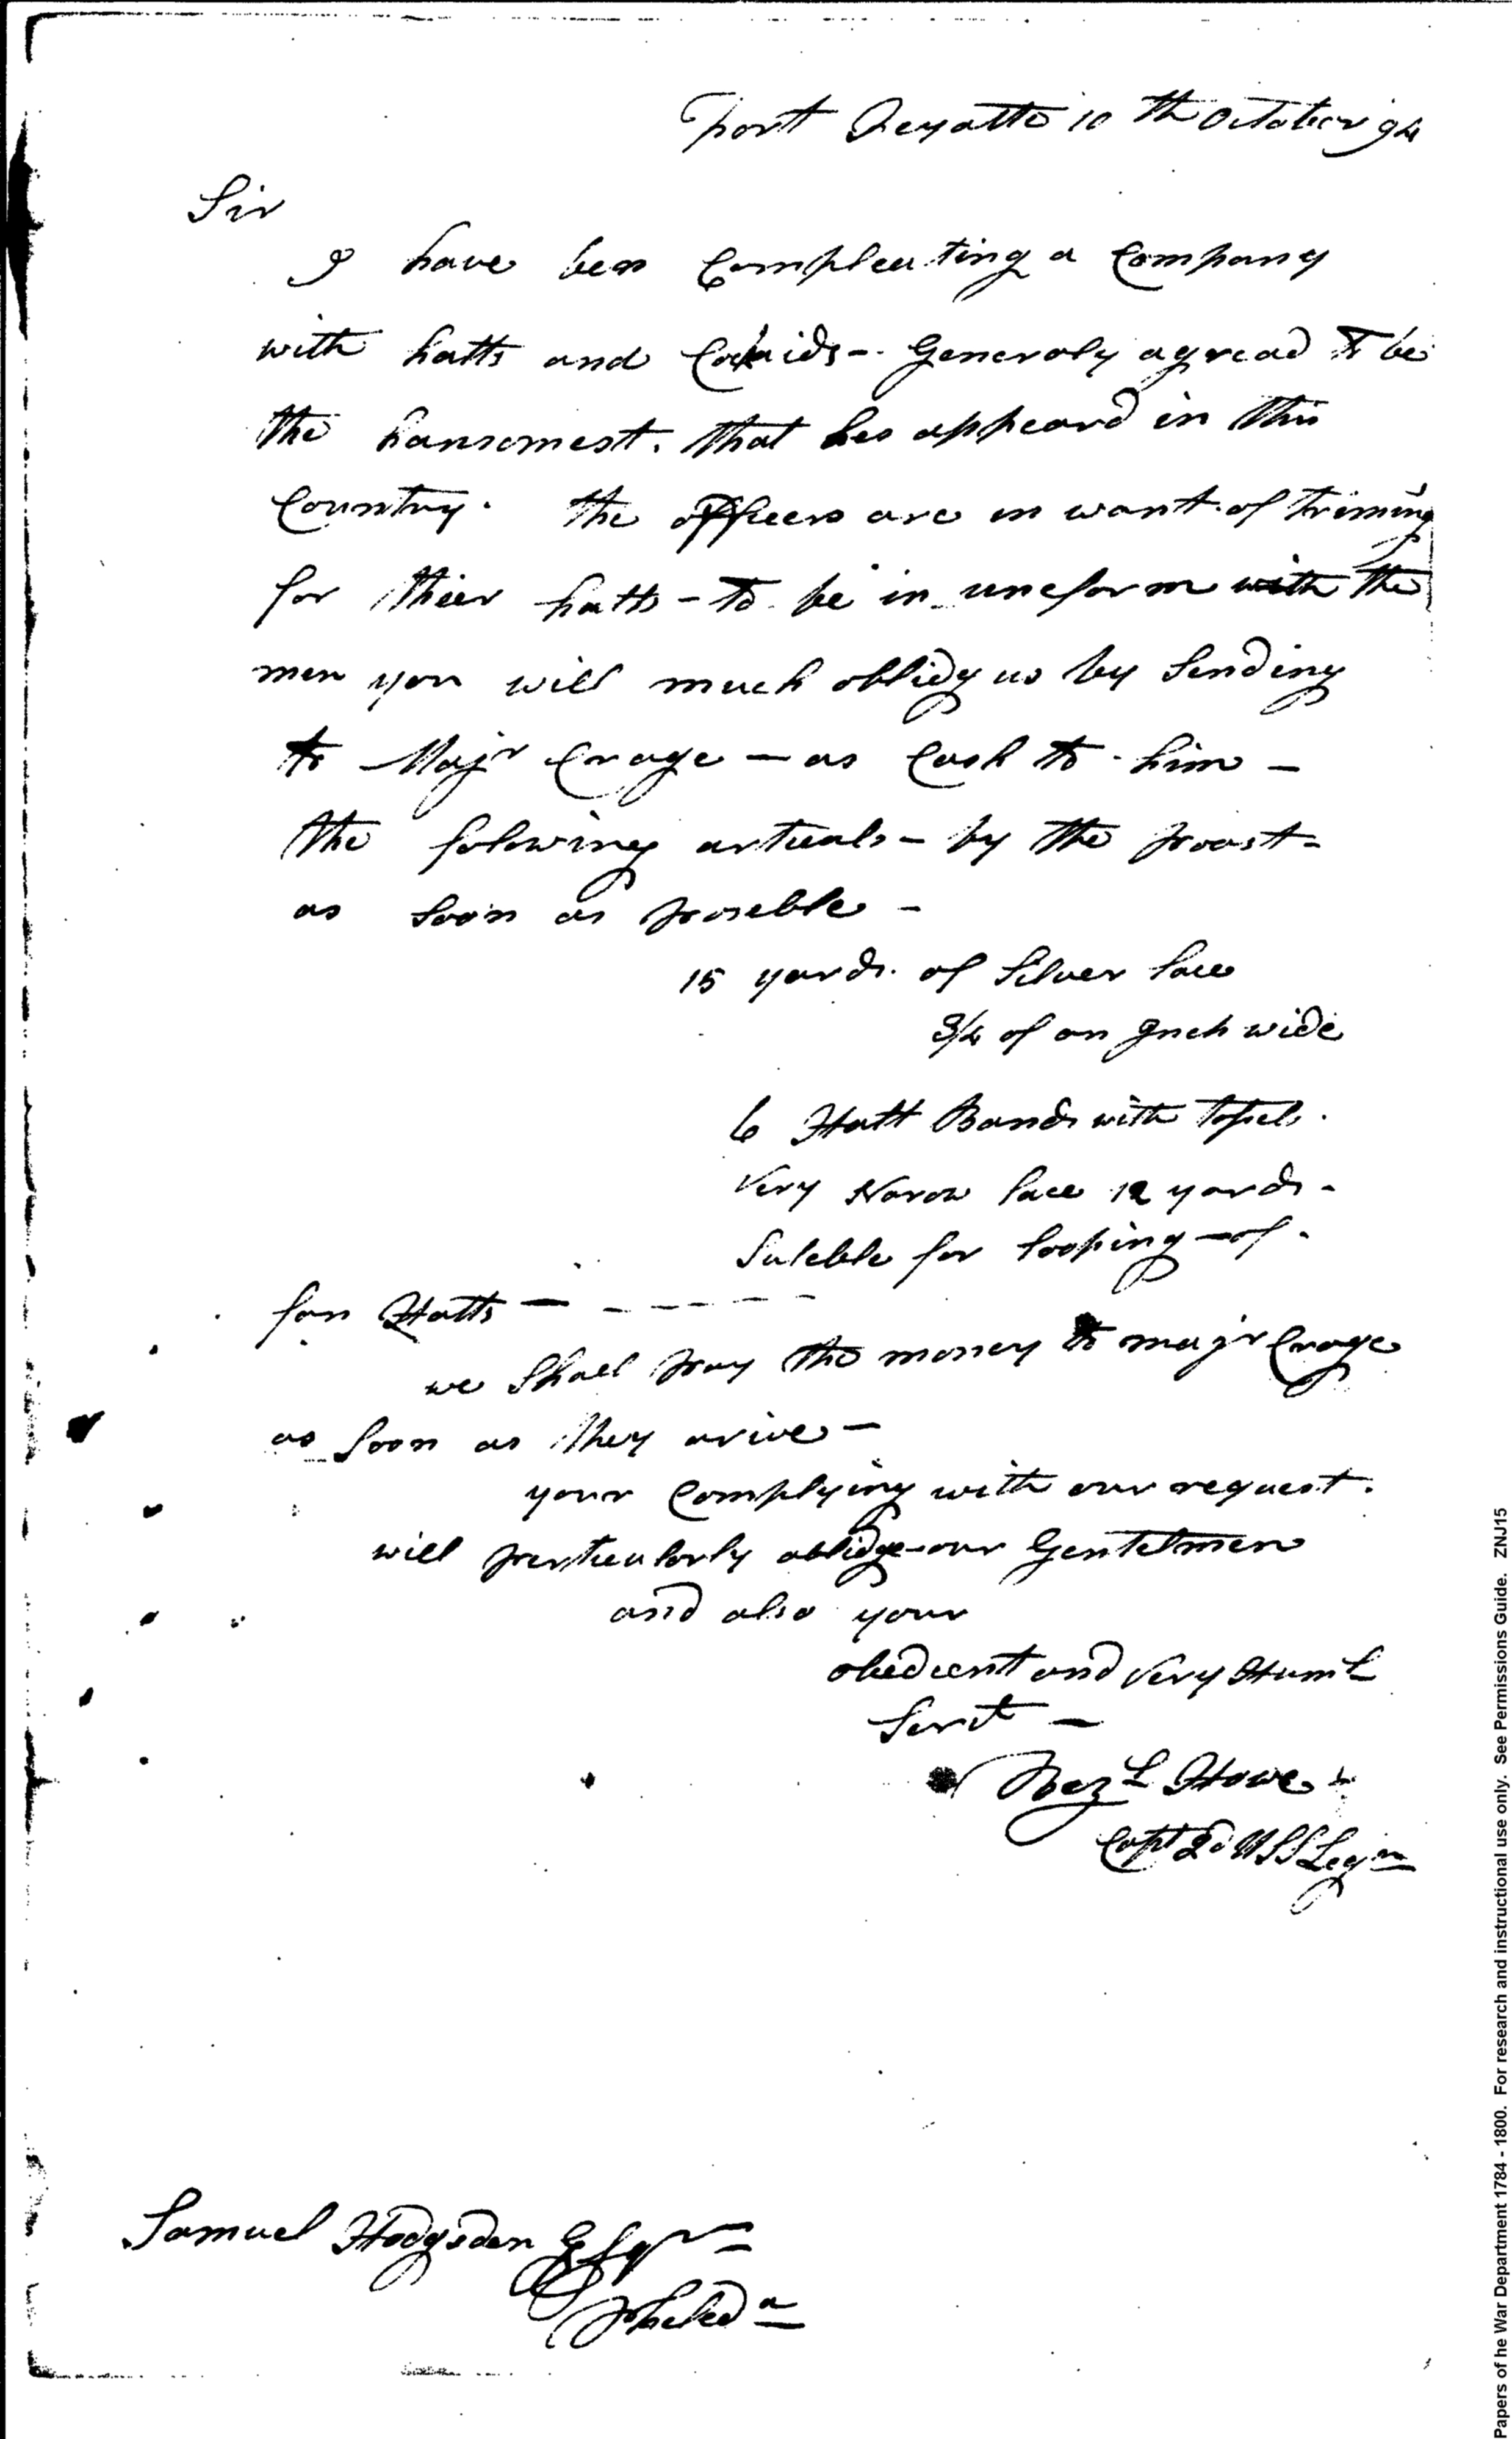 Fort Feyatte 10th October 94
Sir
I have ben Compleating a Company
with hatts and Cockaids - Generaly agread to be
the hansomest. that has appeard in this
Country. the officers are in want of triming
for thier hatts - to be in uneform with the
men you will much oblidg us by Sending
to Majr Crage - as Cash to him -
the folowing articals - by the poast -
as soon as poseble -
15 yards of Silver lace
3/4 of an Inch wide
6 Hatt Bands with Tosels.
Very Narow lace 12 yards -
Suteble for looping - of -
for Hatts -
we Shall pay the money to majr Crage
as Soon as they arive -
your Complying with our request.
will perticularly oblidge our Gentelmen
and also your
obedient and Very Huml
Servt -
Bezl Howe
Capt 2d USS Legn
Samuel Hodgsden Esqr
Phileda
Papers of he War Department 1784 - 1800. For research and instructional use only. See Permissions Guide. ZNJ15